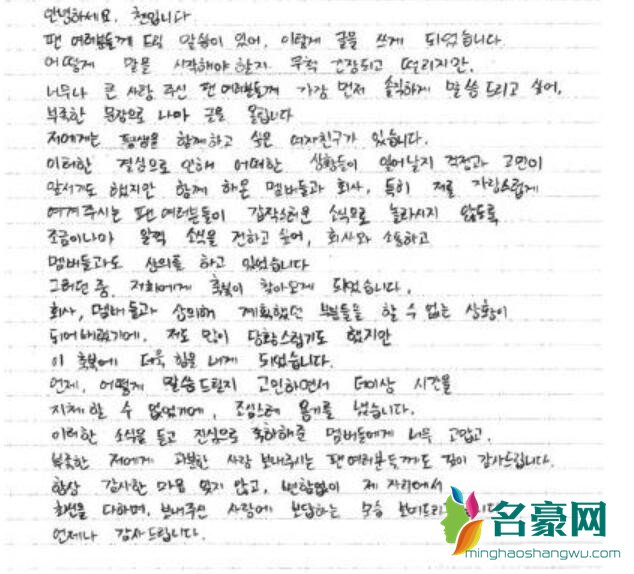 안녕하세요, 첸입니다
팬 여러분들께 드릴 말씀이 있어, 이렇게 글을 쓰게 되었습니다.
어떻게 말을 시작해야 할지 무척 긴장되고 떨리지만,
너무나 큰 사랑 주신 팬 여러분들께 가장 먼저 솔직하게 말씀 드리고 싶어,
부족한 문장으로 나마 글을 올립니다
저에게는 평생을 함께하고 싶은 여자친구가 있습니다.
이러한 결심으로 인해 어떠한 상황들이 일어날지 걱정과 고민이
앞서기도 했지만 함께 해온 멤버들과 회사, 특히 저를 자랑스럽게
여겨주시는 팬 여러분들이 갑작스러운 소식으로 놀라시지 않도록
조금이나마 일찍 소식을 전하고 싶어, 회사와 소통하고
멤버들과도 상의를 하고 있었습니다
그러던 중, 저희에게 축복이 찾아오게 되었습니다.
회사, 멤버들과 상의해 계획했던 부분들을 할 수 없는 상황이
되어버렸기에, 저도 많이 당황스럽기도 했지만
이 축복에 더욱 힘을 내게 되었습니다.
언제, 어떻게 말씀드릴지 고민하면서 더이상 시간을
지체할 수 없었기에, 조심스레 용기를 냈습니다.
이러한 소식을 듣고 진심으로 축하해준 멤버들에게 너무 고맙고,
부족한 저에게 과분한 사랑 보내주시는 팬 여러분들께도 깊이 감사드립니다.
항상 감사한 마음 잊지 않고, 변함없이 제 자리에서
최선을 다하며, 보내주신 사랑에 보답하는 모습
언제나 감사드립니다.
名豪网
minghaoshangwu.com